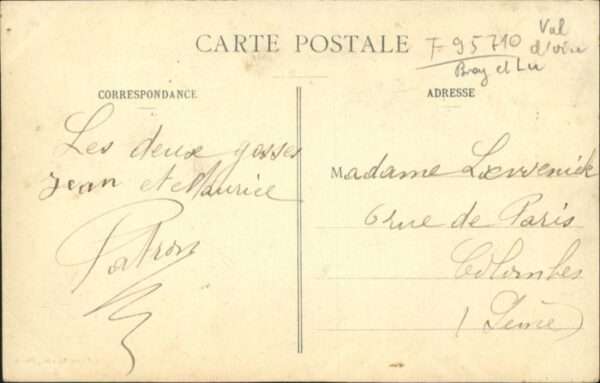 CARTE POSTALE
F-95710 Val
d'oise
Bray et Lu
CORRESPONDANCE
Les deux gosses
Jean et Maurice
Patron
ADRESSE
Madame
6 rue de Paris
Colombes
(Seine)